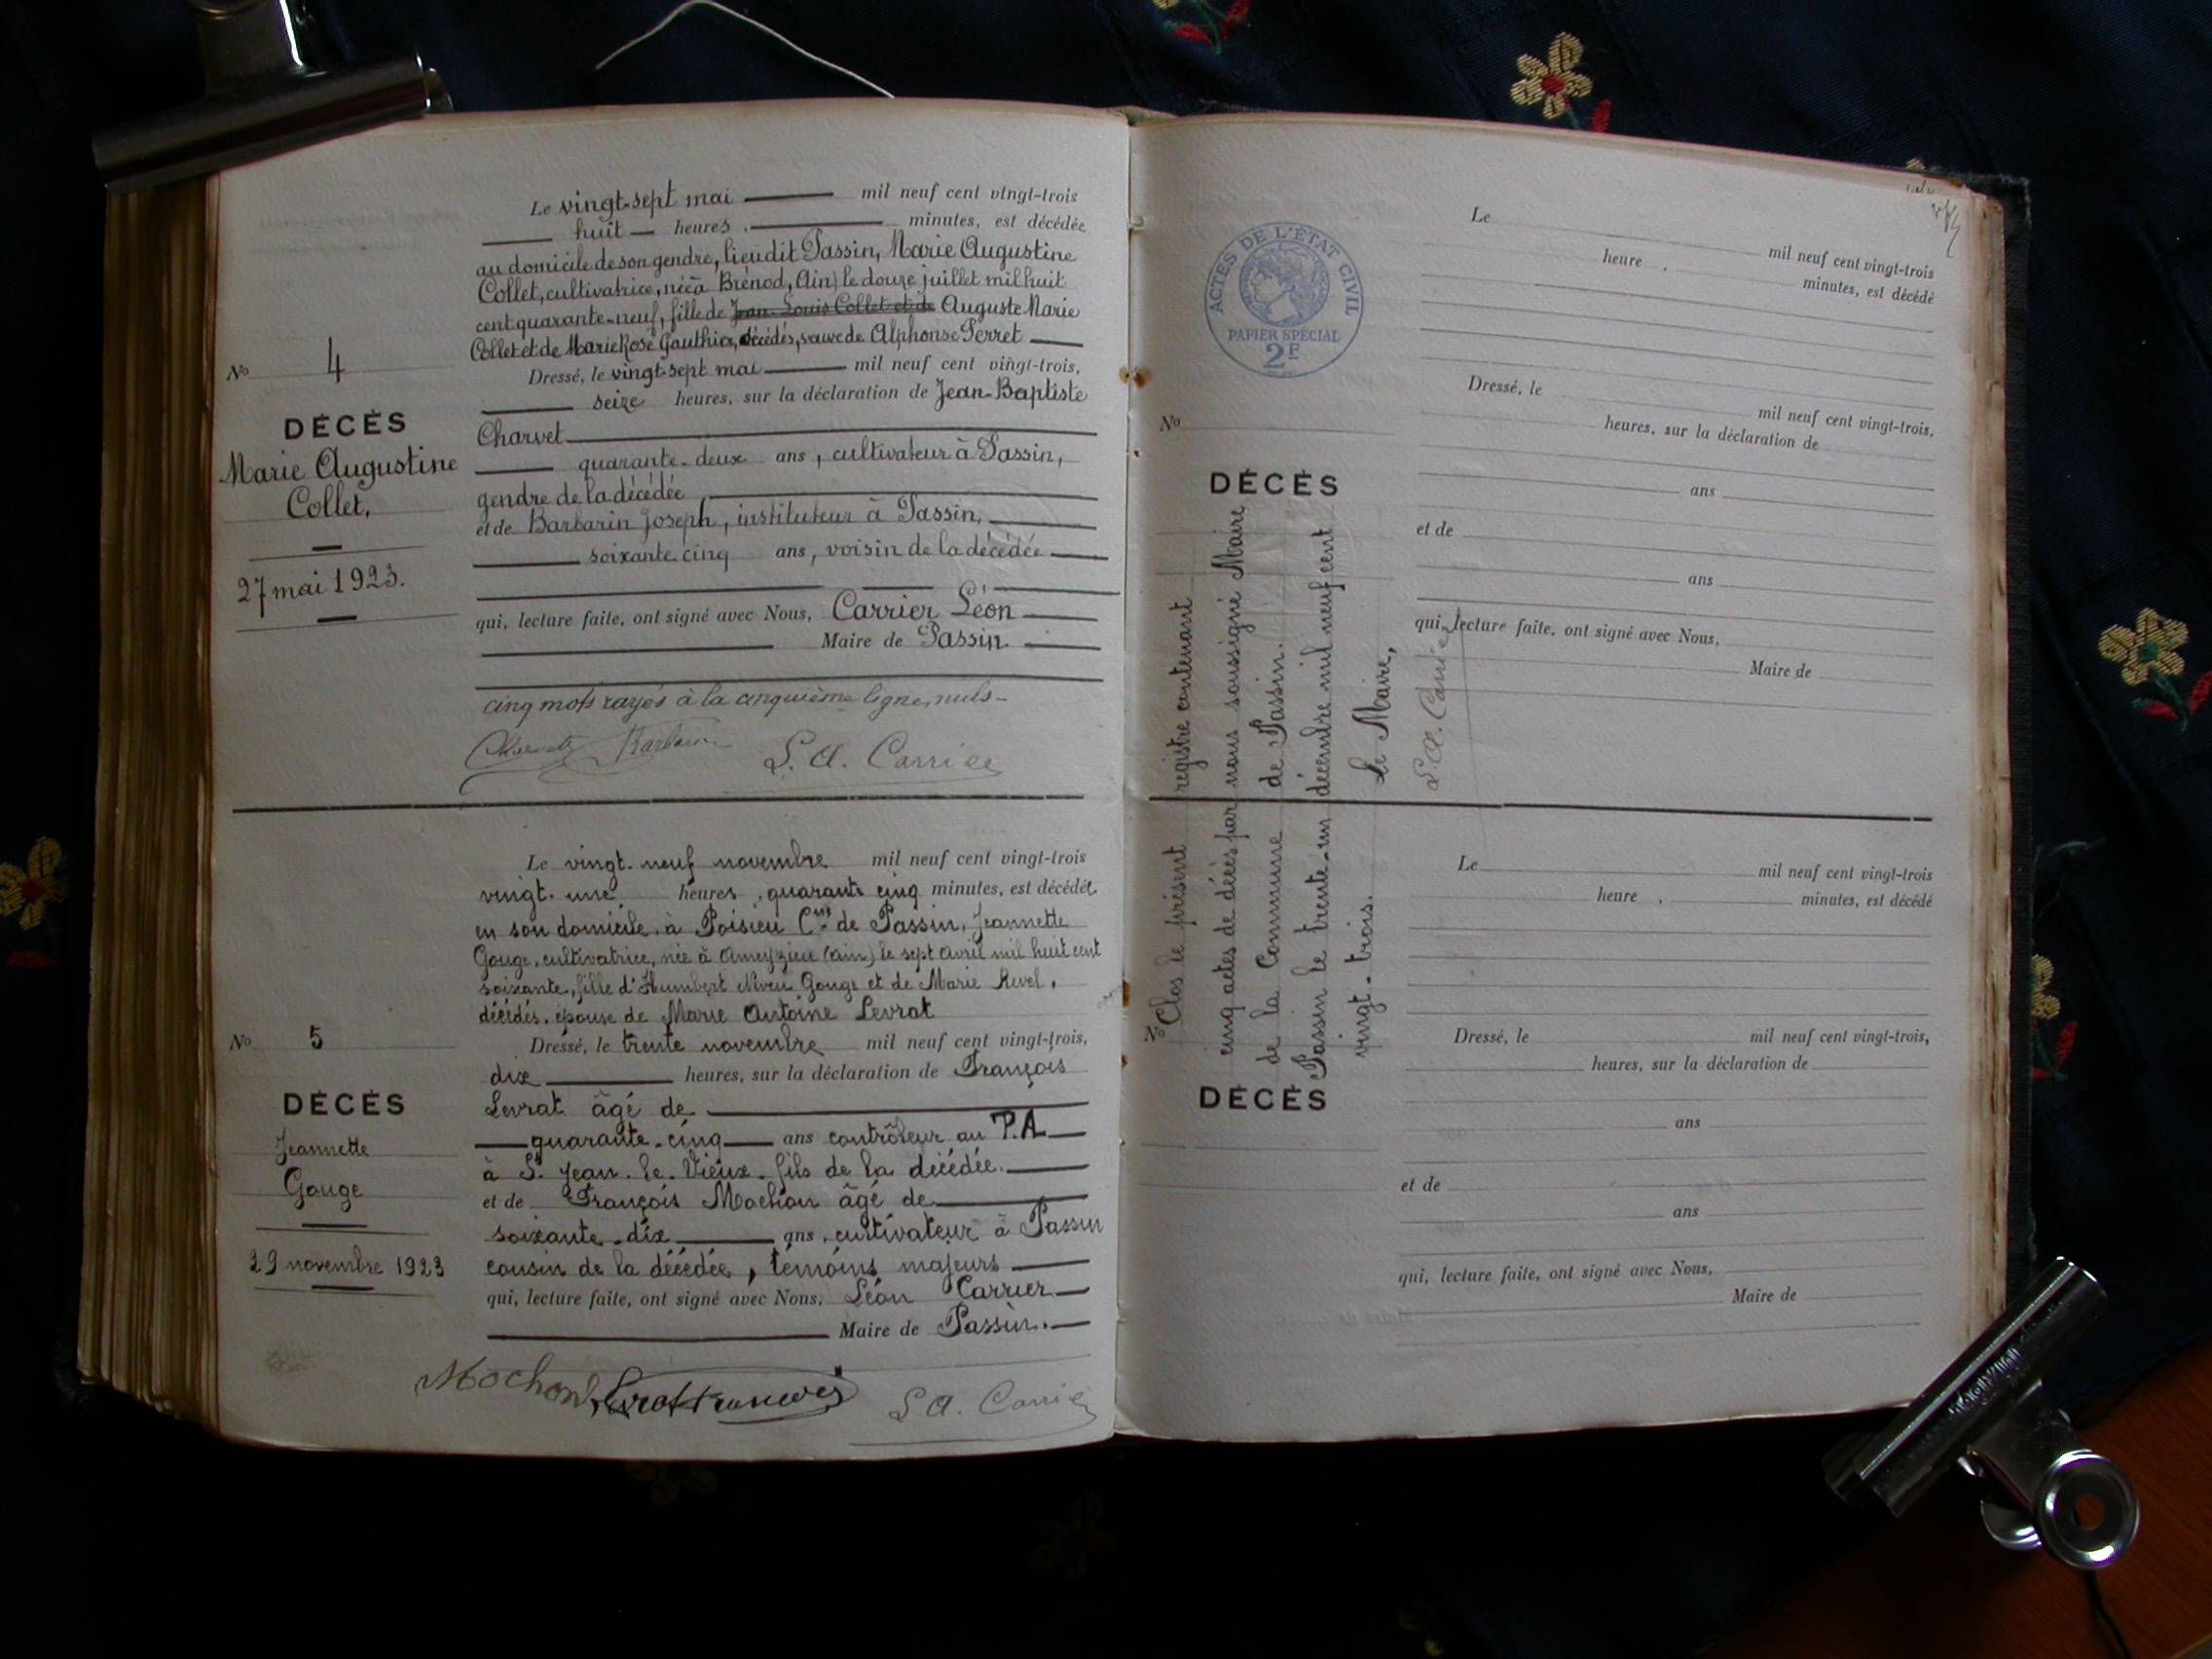 Le vingt-sept mai mil neuf cent vingt-trois
huit heures, minutes, est décédée
au domicile de son gendre, lieudit Passin, Marie Augustine
Collet, cultivatrice, née à Brénod, (Ain) le douze juillet mil huit
cent quarante-neuf, fille de Jean-Louis Collet et de Auguste Marie
Collet et de Marie Rose Gauthier, décédés, veuve de Alphonse Perret
No 4
Dressé, le vingt-sept mai mil neuf cent vingt-trois,
seize heures, sur la déclaration de Jean-Baptiste
DÉCÈS
Marie Augustine
Collet,
27 mai 1923.
Charvet
quarante-deux ans, cultivateur à Passin,
gendre de la décédée,
et de Barbarin Joseph, instituteur à Passin,
soixante cinq ans, voisin de la décédée
qui, lecture faite, ont signé avec Nous, Carrier Léon
Maire de Passin.
cinq mots rayés à la cinquième ligne, nuls-
Charvet Barbarin L. A. Carrier
Le vingt-neuf novembre mil neuf cent vingt-trois
vingt-une heures, quarante cinq minutes, est décédée
en son domicile, à Poisieu Cne de Passin, Jeannette
Gouge, cultivatrice, née à Ameyzieu (Ain) le sept avril mil huit cent
soixante, fille d'Humbert Gouge et de Marie Revel,
décédés, épouse de Marie Antoine Levrat
No 5
Dressé, le trente novembre mil neuf cent vingt-trois,
dix heures, sur la déclaration de François
DÉCÈS
Jeannette
Gouge
29 novembre 1923
Levrat âgé de
quarante-cinq ans contrôleur au P.A
à St Jean-le-Vieux-fils de la décédée.
et de François Mochon âgé de
soixante-dix ans, cultivateur à Passin
cousin de la décédée, témoins majeurs
qui, lecture faite, ont signé avec Nous, Léon Carrier
Maire de Passin.
Mochon Levrat François L A. Carrier
ACTES DE L'ÉTAT CIVIL
PAPIER SPÉCIAL
2F
Le
mil neuf cent vingt-trois
heure, minutes, est décédé
Dressé, le mil neuf cent vingt-trois,
heures, sur la déclaration de
No
DÉCÈS
ans
et de
ans
qui, lecture faite, ont signé avec Nous,
Maire de
Clos le présent registre contenant
cinq actes de décès par nous soussigné Maire
de la Commune de Passin.
Passin le trente-un décembre mil neuf cent
vingt-trois. Le Maire,
L. A. Carrier
Le mil neuf cent vingt-trois
heure, minutes, est décédé
No
Dressé, le mil neuf cent vingt-trois,
heures, sur la déclaration de
DÉCÈS
ans
et de
ans
qui, lecture faite, ont signé avec Nous,
Maire de